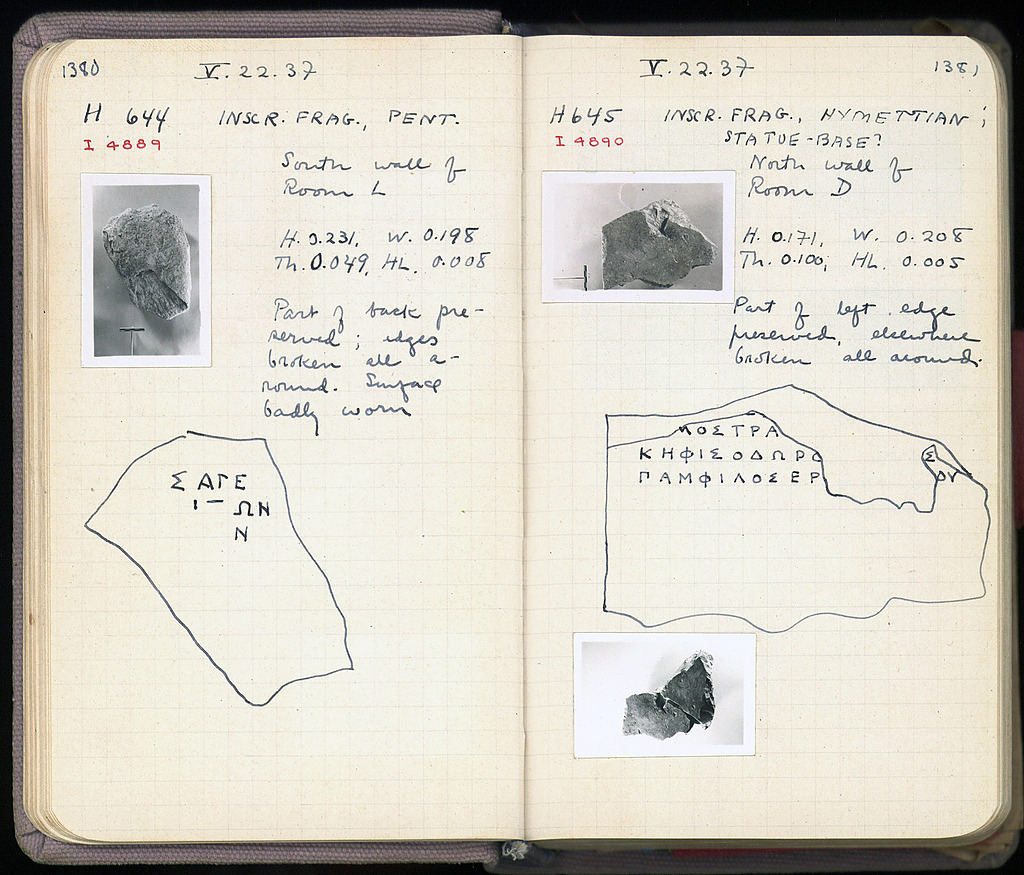 1380
V.22.37
H 644 INSCR. FRAG., PENT.
I 4889
South wall of
Room L
H. 0.231, W. 0.198
Th. 0.049, HL. 0.008
Part of back pre-
served; edges
broken all a-
round. Surface
badly worn
Σ ΑΓΕ
Ι – ΩΝ
Ν
V.22.37
1381
H 645 INSCR. FRAG., HYMETTIAN;
I 4890 STATUE-BASE?
North wall of
Room D
H. 0.171, W. 0.208
Th. 0.100, HL. 0.005
Part of left edge
preserved, elsewhere
broken all around.
ΛΟΣΤΡΑ
ΚΗΦΙΣΟΔΩΡΟ Σ
ΠΑΜΦΙΛΟΣΕΡ ΟΥ